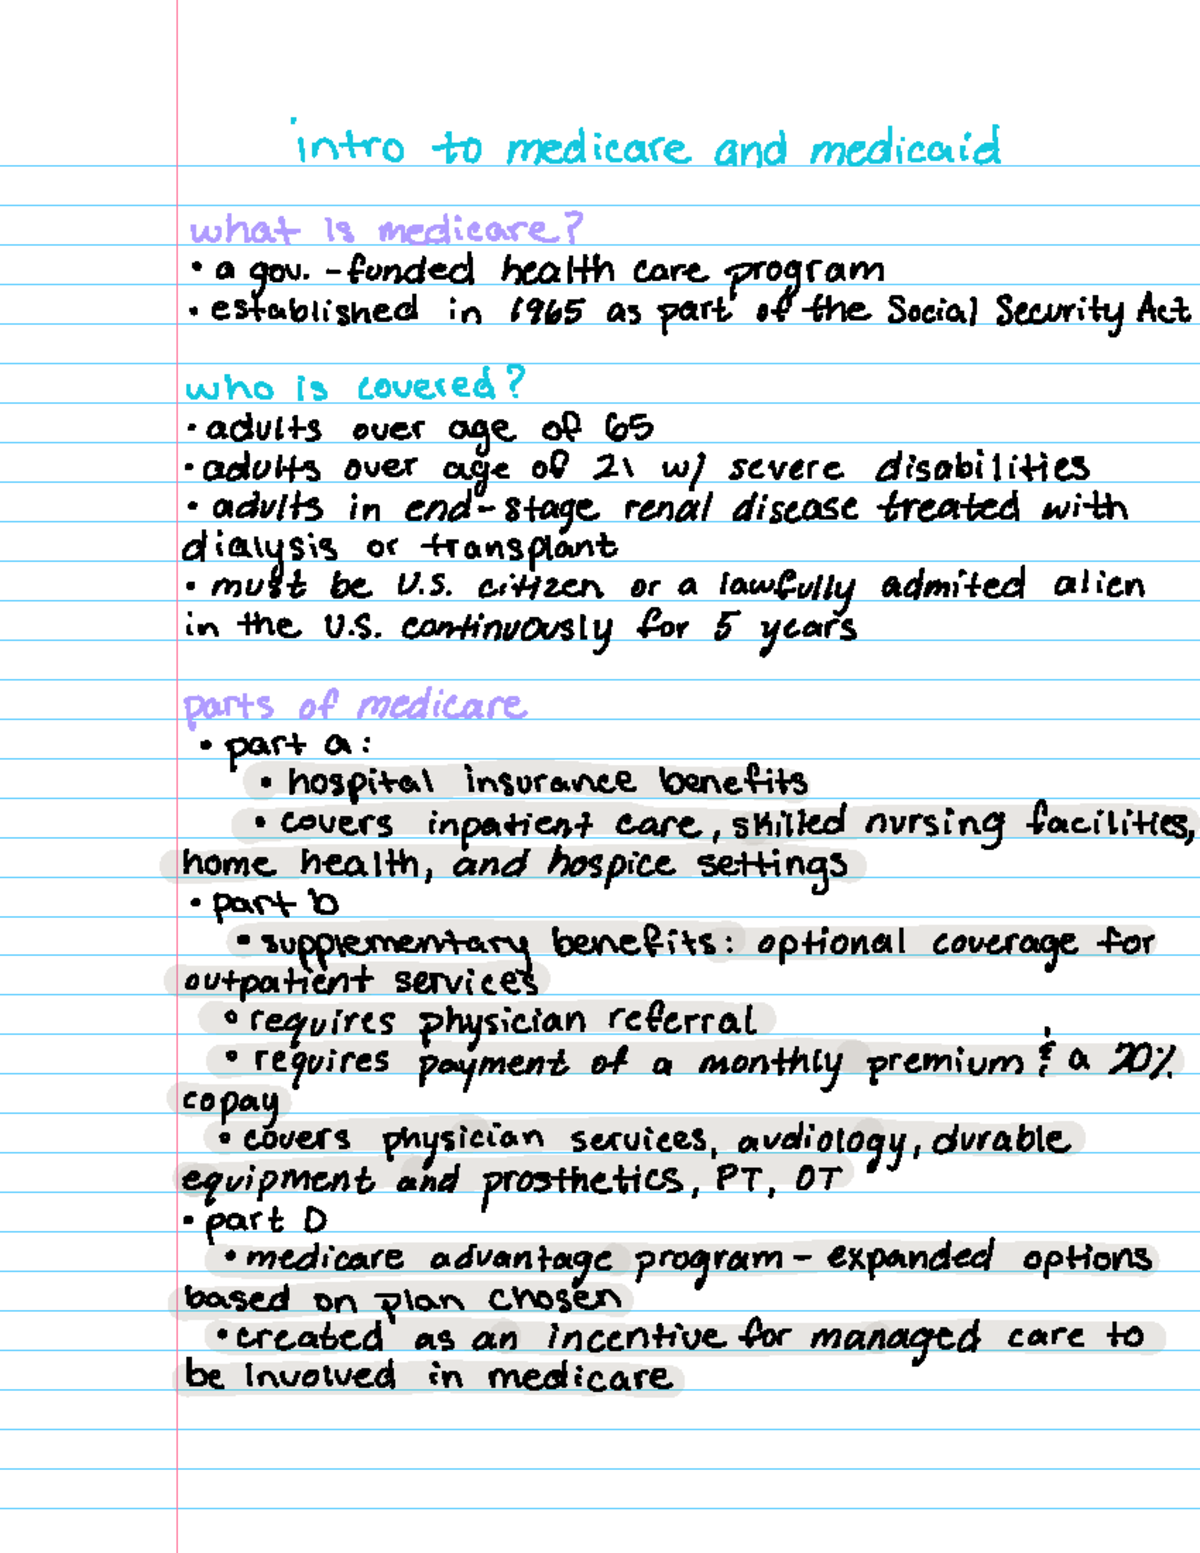 intro to medicare and medicaid
what is medicare?
• a gov. - funded health care program
• established in 1965 as part of the Social Security Act
who is covered?
• adults over age of 65
• adults over age of 21 w/ severe disabilities
• adults in end-stage renal disease treated with
dialysis or transplant
• must be U.S. citizen or a lawfully admited alien
in the U.S. continuously for 5 years
parts of medicare
• part a:
• hospital insurance benefits
• covers inpatient care, skilled nursing facilities,
home health, and hospice settings
• part b
• supplementary benefits: optional coverage for
outpatient services
• requires physician referral
• requires payment of a monthly premium & a 20%
copay
• covers physician services, audiology, durable
equipment and prosthetics, PT, OT
• part D
• medicare advantage program - expanded options
based on plan chosen
• created as an incentive for managed care to
be involved in medicare